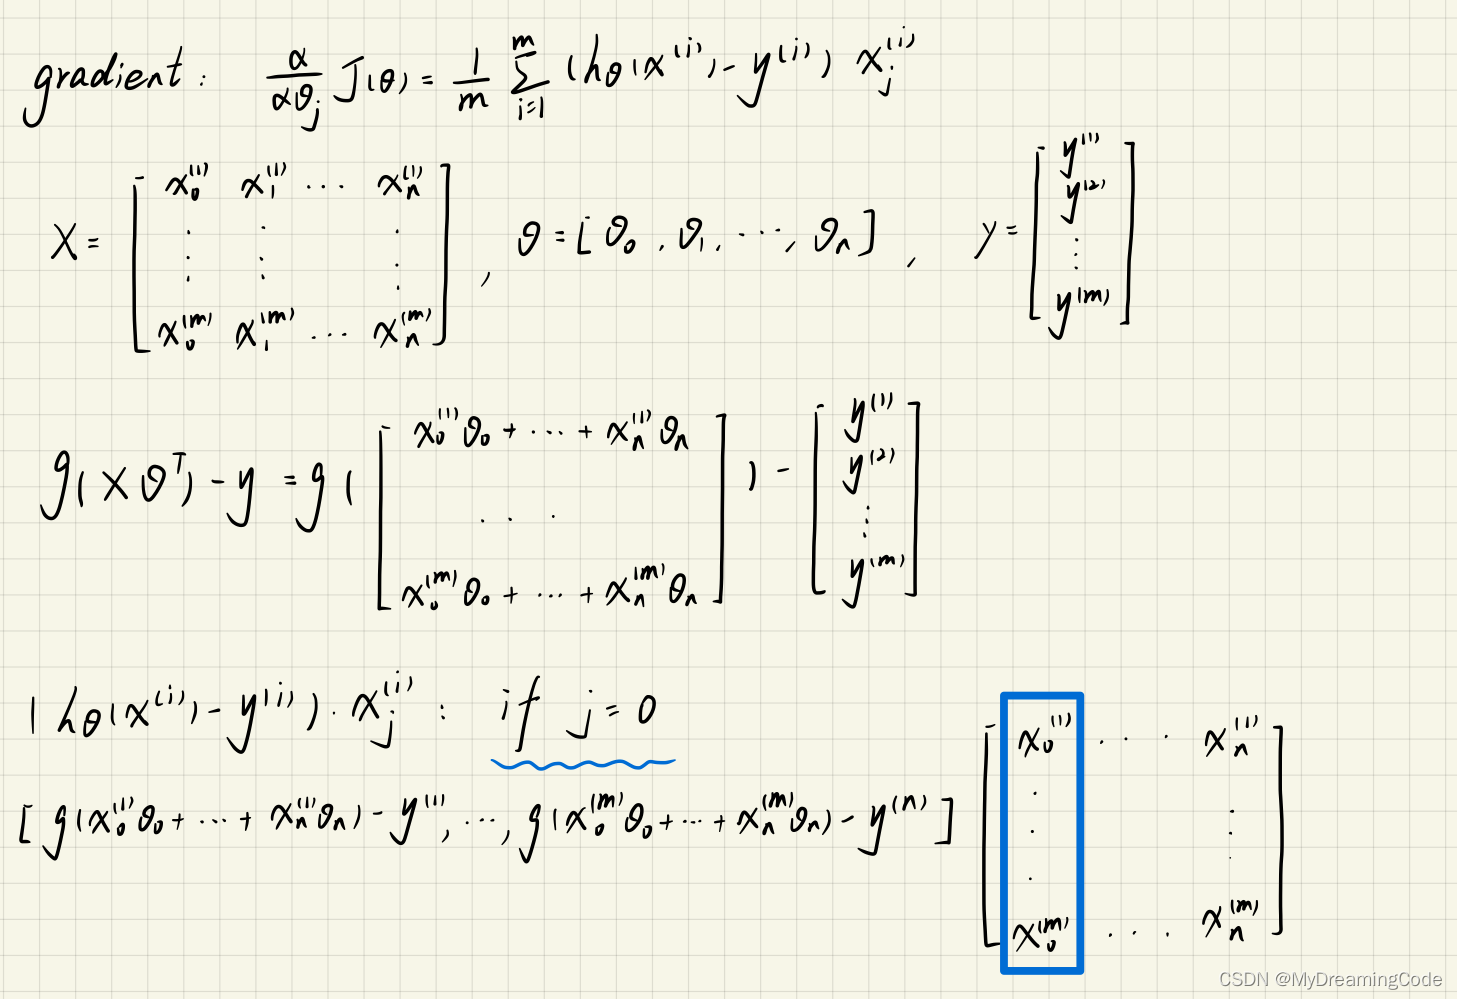 gradient: α/αθ_j J(θ) = 1/m Σ_{i=1}^{m} (h_θ(x^{(i)}) - y^{(i)}) x_j^{(i)}
X = [ x_0^{(1)} x_1^{(1)} ⋯ x_n^{(1)} ; ⋮ ⋮ ⋮ ; x_0^{(m)} x_1^{(m)} ⋯ x_n^{(m)} ] , θ = [θ_0, θ_1, ⋯, θ_n] , y = [ y^{(1)} ; y^{(2)} ; ⋮ ; y^{(m)} ]
g(Xθ^T) - y = g( [ x_0^{(1)}θ_0 + ⋯ + x_n^{(1)}θ_n ; ⋯ ; x_0^{(m)}θ_0 + ⋯ + x_n^{(m)}θ_n ] ) - [ y^{(1)} ; y^{(2)} ; ⋮ ; y^{(m)} ]
(h_θ(x^{(i)}) - y^{(i)}) · x_j^{(i)} : if j = 0
[ g(x_0^{(1)}θ_0 + ⋯ + x_n^{(1)}θ_n) - y^{(1)}, ⋯, g(x_0^{(m)}θ_0 + ⋯ + x_n^{(m)}θ_n) - y^{(n)} ] [ x_0^{(1)} ⋯ x_n^{(1)} ; ⋮ ⋮ ; x_0^{(m)} ⋯ x_n^{(m)} ]
CSDN @MyDreamingCode